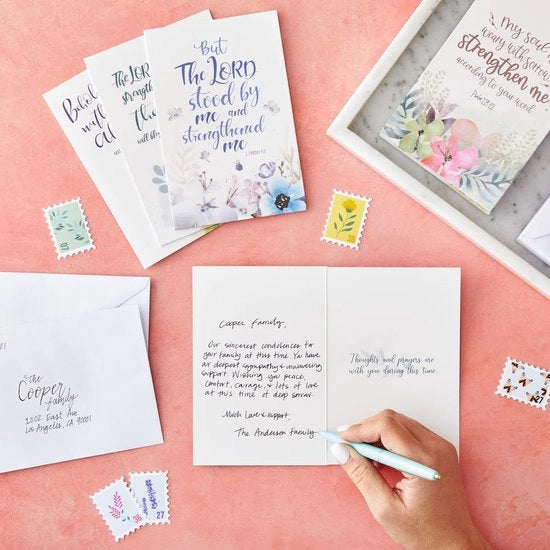 But
The LORD
stood by
me and
strengthened
me
The LORD
will
My soul
weary with sorrow
strengthen me
according to your word.
Cooper Family,
Our sincerest condolences for
your family at this time. You have
our deepest sympathy & unwavering
support. Wishing you peace,
comfort, courage, & lots of love
at this time of deep sorrow.
Much Love & support,
The Anderson Family
Thoughts and prayers are
with you during this time.
the
Cooper
family
1002 East Ave
Los Angeles, CA 90001
07
38
27
36
27